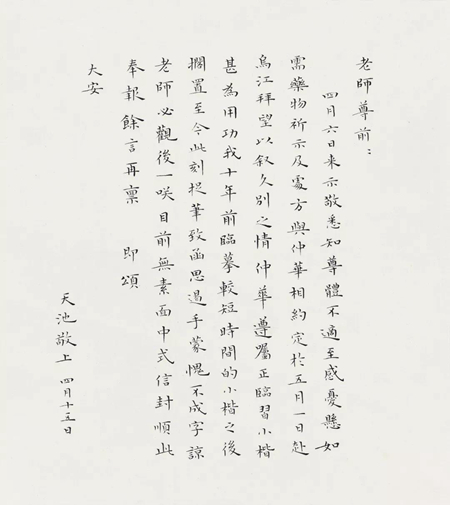 老师尊前：
四月六日来示敬悉知尊體不適至感憂懸如
需藥物祈示及處方與仲華相約定於五月一日赴
烏江拜望以叙久別之情仲華遵囑正臨習小楷
甚為用功我十年前臨摹較短時間的小楷之後
擱置至今此刻捉筆致函思過手蒙愧不成字諒
老师必觀後一咲目前無素面中式信封順此
奉報餘言再禀 即頌
大安
天池敬上 四月十五日